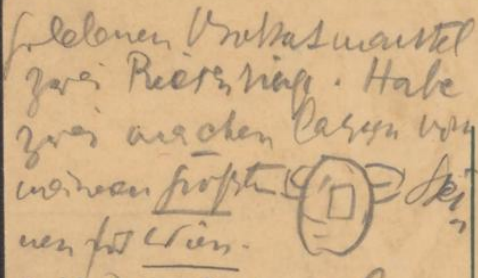 goldenen Brokatmantel
zwei Riesenringe. Habe
zwei machen lassen von
meinen größten Stei-
nen für Wien.